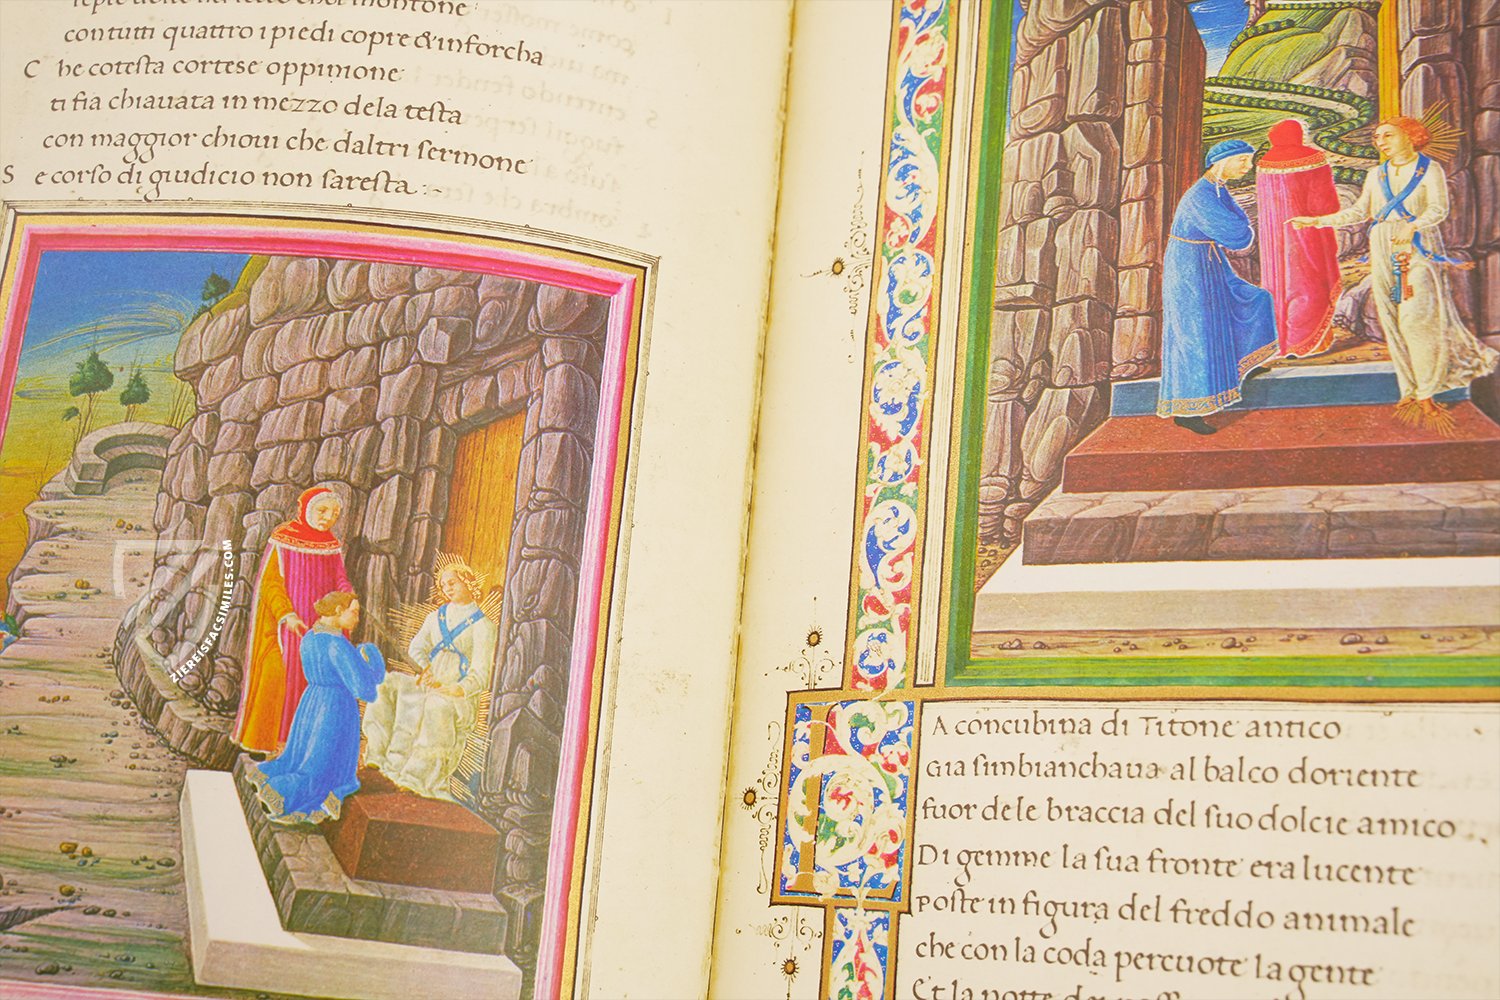 con tutti quattro i piedi copre & inforcha
C he cotesta cortese oppinione
ti fia chiauata in mezzo dela testa
con maggior chioui che daltri sermone
S e corso di giudicio non saresta :~
ZIEREISFACSIMILES.COM
L A CONCUBINA DI TITONE ANTICO
Gia sinbianchaua al balco doriente
fuor dele braccia del suo dolcie amico
Di gemme la sua fronte era lucente
poste in figura del freddo animale
che con la coda percuote la gente
Et la notte